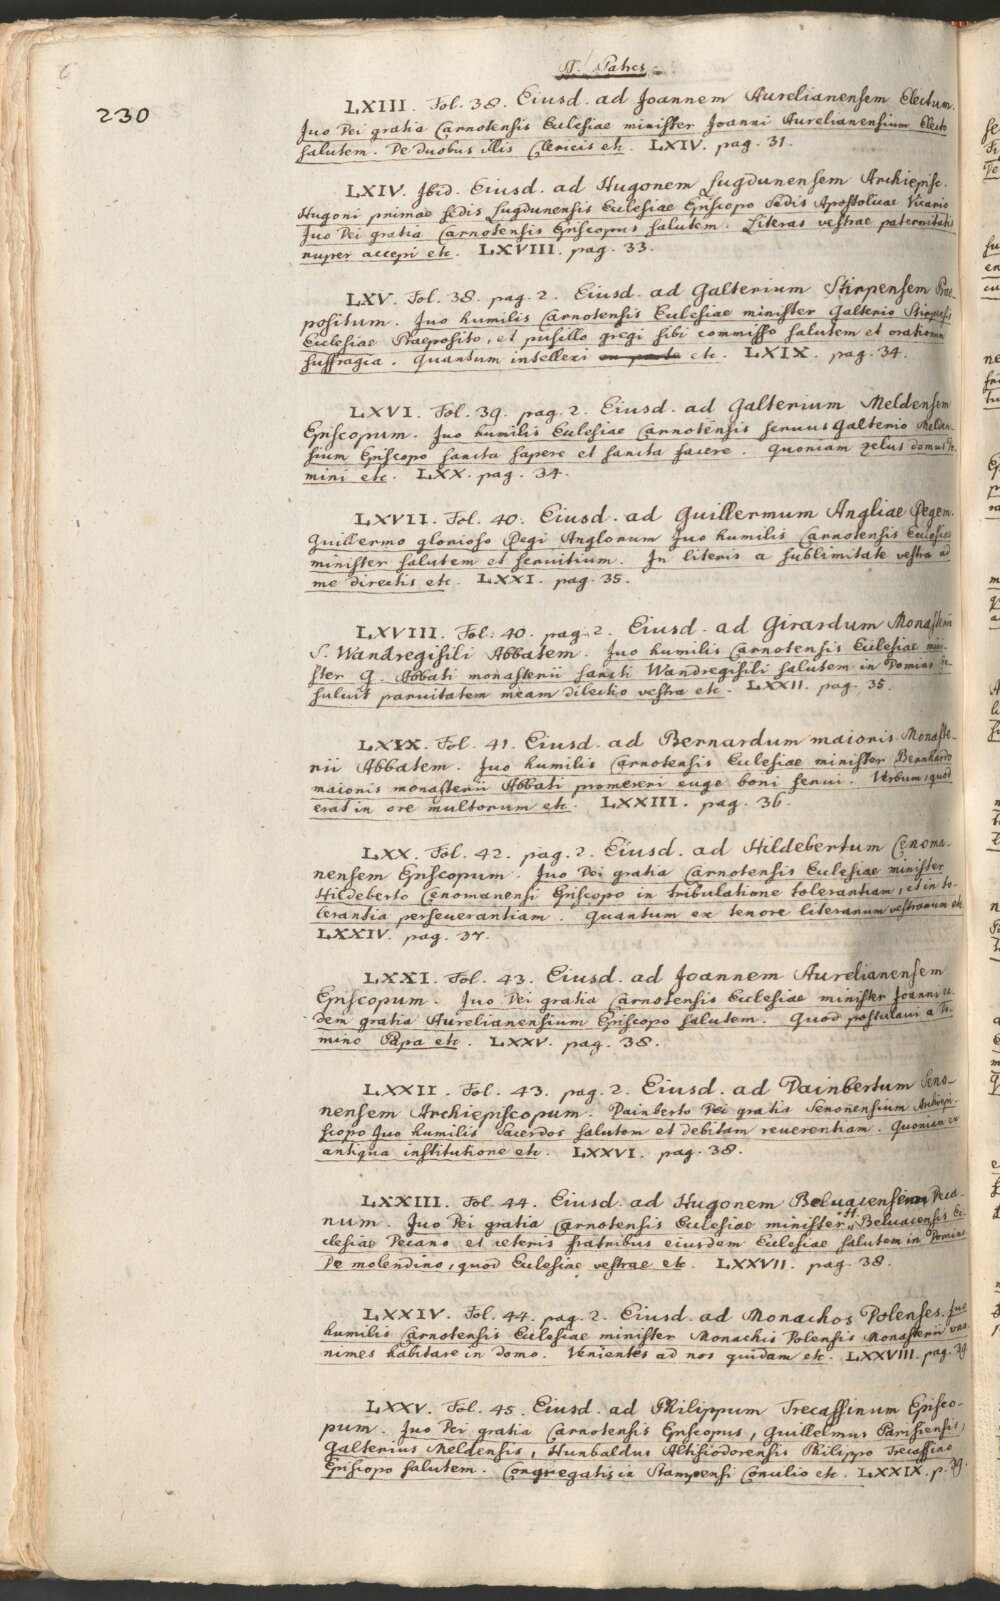 SS. Patres.
230
LXIII. Fol. 38. Eiusd. ad Joannem Aurelianensem Electum.
Juo Dei gratia Carnotensis Ecclesiae minister Joanni Aurelianensium Electo
salutem. De duobus illis Clericis etc. LXIV. pag. 31.
LXIV. Ibid. Eiusd. ad Hugonem Lugdunensem Archiepisc.
Hugoni primae sedis Lugdunensis Ecclesiae Episcopo Sedis Apostolicae Vicario
Juo Dei gratia Carnotensis Episcopus salutem. Literas vestrae paternitatis
nuper accepi etc. LXVIII. pag. 33.
LXV. Fol. 38. pag. 2. Eiusd. ad Galterium Stirpensem Prae-
positum. Juo humilis Carnotensis Ecclesiae minister Galterio Stirpensis
Ecclesiae Praeposito, et pusillo gregi sibi commisso salutem et orationum
suffragia. Quantum intellexi etc. LXIX. pag. 34.
LXVI. Fol. 39. pag. 2. Eiusd. ad Galterium Meldensem
Episcopum. Juo humilis Ecclesiae Carnotensis seruus Galterio Melden-
sium Episcopo sancta sapere et sancta facere. Quoniam zelus domus Do-
mini etc. LXX. pag. 34.
LXVII. Fol. 40. Eiusd. ad Guillermum Angliae Regem.
Guillermo glorioso Regi Anglorum Juo humilis Carnotensis Ecclesiae
minister salutem et seruitium. In literis a sublimitate vestra ad
me directis etc. LXXI. pag. 35.
LXVIII. Fol. 40. pag. 2. Eiusd. ad Girardum Monasterii
S. Wandregisili Abbatem. Juo humilis Carnotensis Ecclesiae mini-
ster G. Abbati monasterii sancti Wandregisili salutem in Domino. Con-
suluit paruitatem meam dilectio vestra etc. LXXII. pag. 35.
LXIX. Fol. 41. Eiusd. ad Bernardum maioris Monaste-
rii Abbatem. Juo humilis Carnotensis Ecclesiae minister Bernhardo
maioris monasterii Abbati promereri euge boni serui. Verbum, quod
erat in ore multorum etc. LXXIII. pag. 36.
LXX. Fol. 42. pag. 2. Eiusd. ad Hildebertum Cenoma-
nensem Episcopum. Juo Dei gratia Carnotensis Ecclesiae minister
Hildeberto Cenomanensi Episcopo in tribulatione tolerantiam, et in to-
lerantia perseuerantiam. Quantum ex tenore literarum vestrarum etc.
LXXIV. pag. 37.
LXXI. Fol. 43. Eiusd. ad Joannem Aurelianensem
Episcopum. Juo Dei gratia Carnotensis Ecclesiae minister Joanni ea-
dem gratia Aurelianensium Episcopo salutem. Quod postulaui a Do-
mino Papa etc. LXXV. pag. 38.
LXXII. Fol. 43. pag. 2. Eiusd. ad Dainbertum Seno-
nensem Archiepiscopum. Dainberto Dei gratia Senonensium Archiepi-
scopo Juo humilis Sacerdos salutem et debitam reuerentiam. Quoniam ex
antiqua institutione etc. LXXVI. pag. 38.
LXXIII. Fol. 44. Eiusd. ad Hugonem Beluacensem Deca-
num. Juo Dei gratia Carnotensis Ecclesiae minister H. Beluacensis Ec-
clesiae Decano et ceteris fratribus eiusdem Ecclesiae salutem in Domino.
De molendino, quod Ecclesiae vestrae etc. LXXVII. pag. 38.
LXXIV. Fol. 44. pag. 2. Eiusd. ad Monachos Polenses. Juo
humilis Carnotensis Ecclesiae minister Monachis Polensis Monasterii una-
nimes habitare in domo. Venientes ad nos quidam etc. LXXVIII. pag. 39.
LXXV. Fol. 45. Eiusd. ad Philippum Trecassinum Episco-
pum. Juo Dei gratia Carnotensis Episcopus, Guillelmus Parisiensis,
Galterius Meldensis, Hunbaldus Altisiodorensis Philippo Trecassino
Episcopo salutem. Congregatis in Stampensi Concilio etc. LXXIX. p. 39.